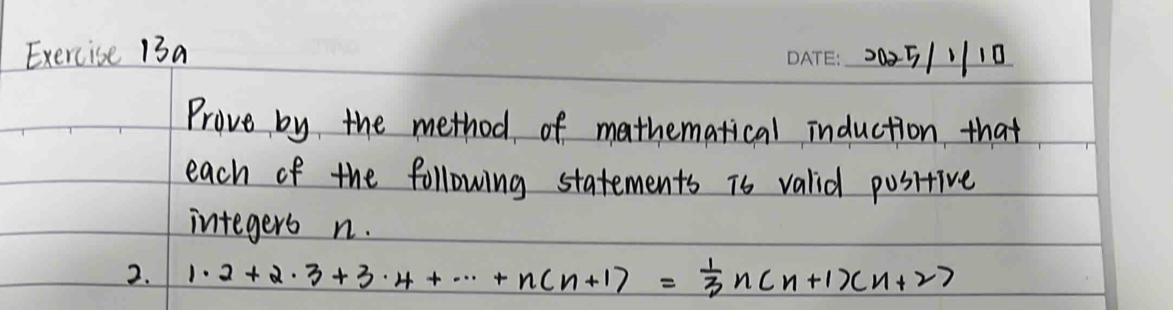 Exercise 13a
DATE: 2025/1/10
Prove by the method of mathematical induction that
each of the following statements is valid positive
integers n.
2. 1·2+2·3+3·4+···+n(n+1) = 1/3 n(n+1)(n+2)